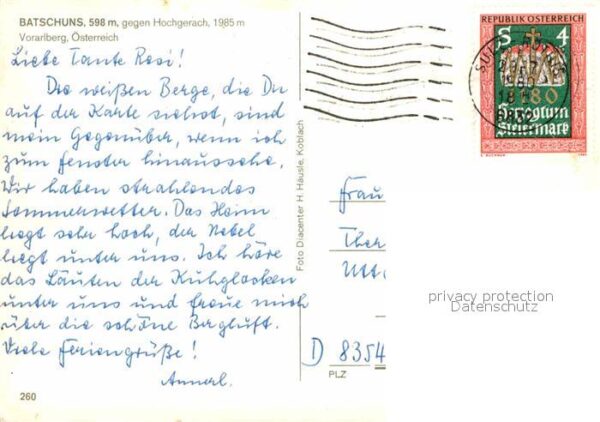 BATSCHUNS, 598 m, gegen Hochgerach, 1985 m
Vorarlberg, Österreich
Liebe Tante Resi!
Die weißen Berge, die Du
auf der Karte siehst, sind
mein Gegenüber, wenn ich
zum Fenster hinaussche.
Wir haben strahlendes
Sommerwetter. Das Heim
liegt sehr hoch, der Nebel
liegt unter uns. Ich höre
das Läuten der Kuhglocken
unter uns und freue mich
über die schöne Bergluft.
Viele Feriengrüße!
Annerl.
260
Foto Diacenter H. Häusle, Koblach
REPUBLIK ÖSTERREICH
S 4
1180
Herzogtum
Steiermark
6832
Frau
Ther
Utt.
privacy protection
Datenschutz
D 8354
PLZ